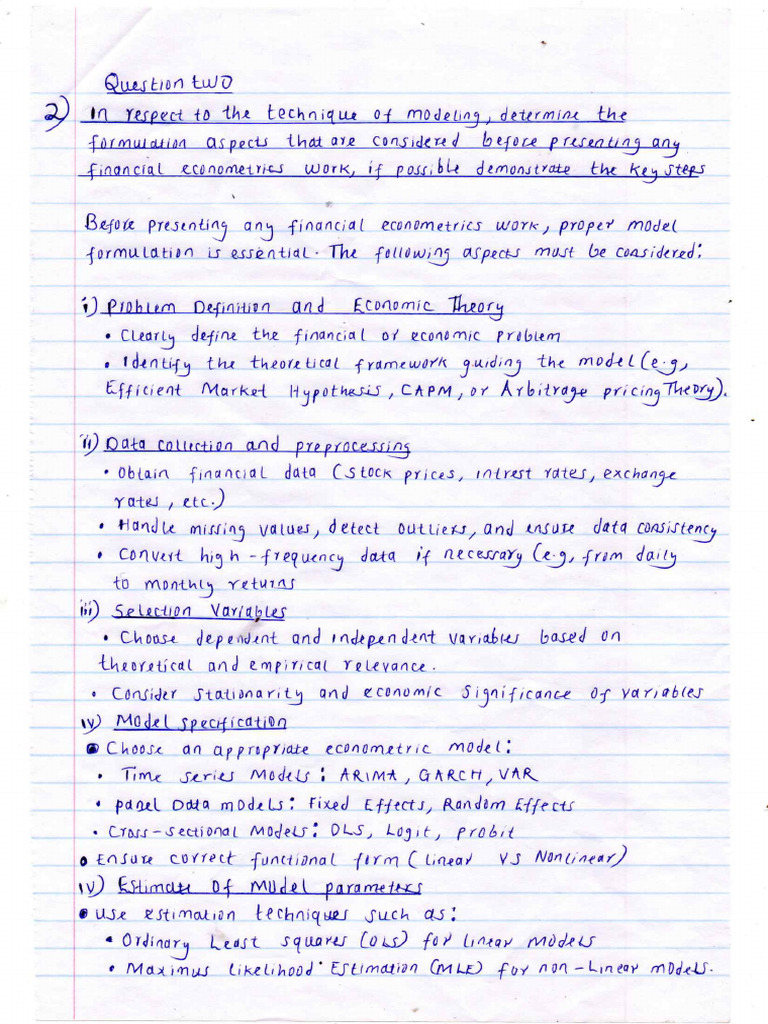 Question two
2) In respect to the technique of modeling, determine the
formulation aspects that are considered before presenting any
financial econometrics work, if possible demonstrate the key steps
Before presenting any financial econometrics work, proper model
formulation is essential. The following aspects must be considered:
i) Problem Definition and Economic Theory
• Clearly define the financial or economic problem
• Identify the theoretical framework guiding the model (e.g,
Efficient Market Hypothesis, CAPM, or Arbitrage pricing Theory).
ii) Data collection and preprocessing
• Obtain financial data (stock prices, intrest rates, exchange
rates, etc.)
• Handle missing values, detect outliers, and ensure data consistency
• Convert high-frequency data if necessary (e.g, from daily
to monthly returns
iii) Selection Variables
• Choose dependent and independent variables based on
theoretical and empirical relevance.
• Consider stationarity and economic significance of variables
iv) Model specification
• Choose an appropriate econometric model:
• Time series Models: ARIMA, GARCH, VAR
• Panel Data models: Fixed Effects, Random Effects
• Cross-sectional Models: OLS, Logit, probit
• Ensure correct functional form (linear vs Nonlinear)
iv) Estimate of Model parameters
• use estimation techniques such as:
• Ordinary Least squares (OLS) for linear models
• Maximus likelihood Estimation (MLE) for non-Linear models.